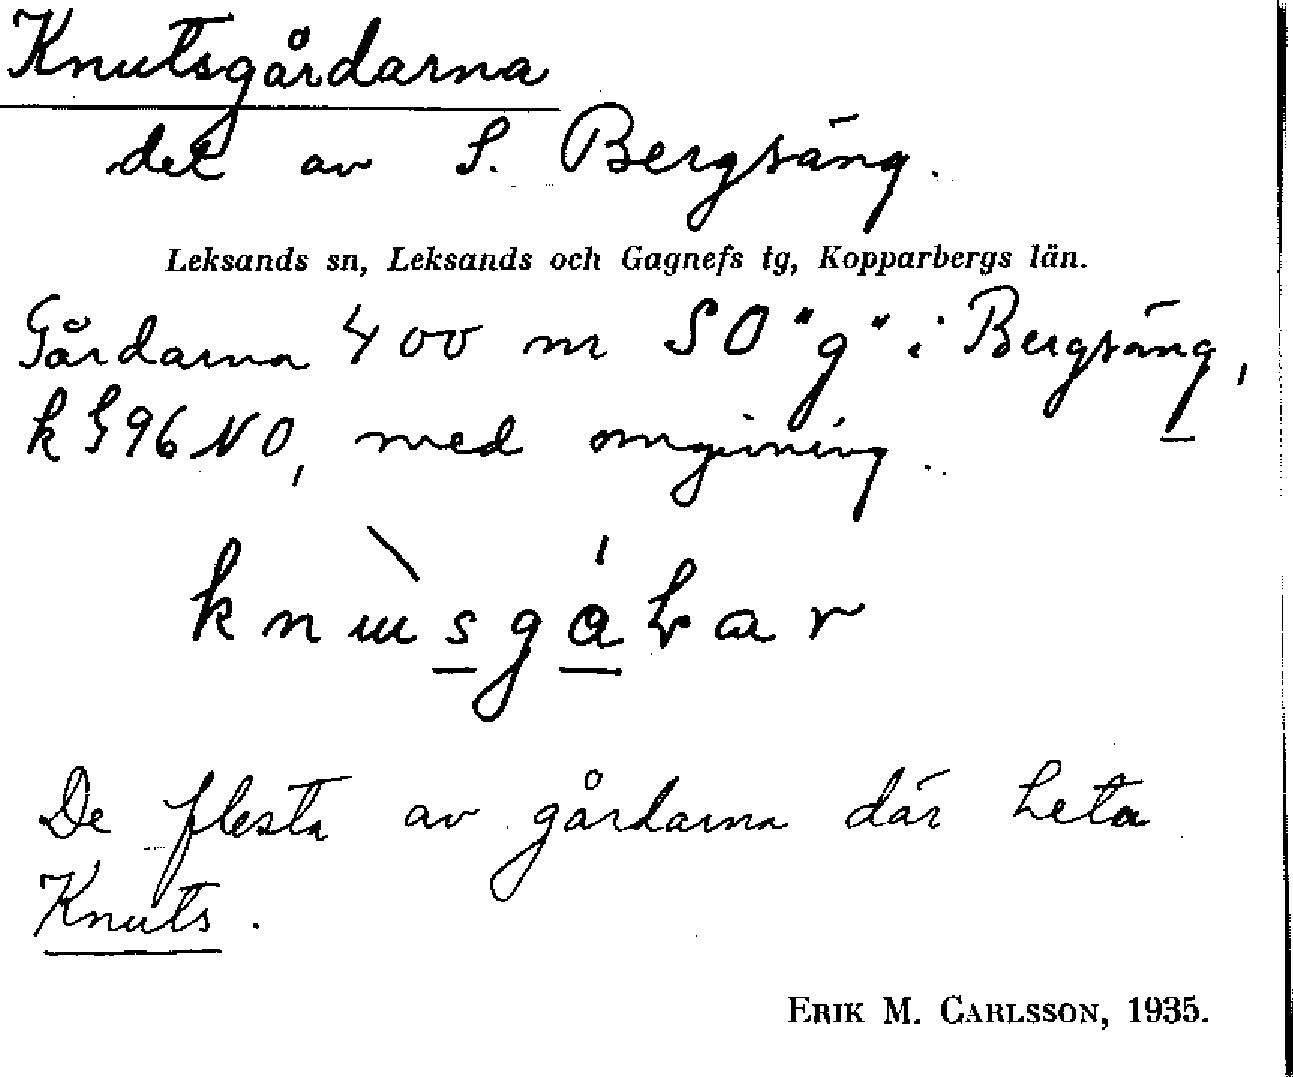 Knutsgårdarna
del av S. Bergsäng.
Leksands sn, Leksands och Gagnefs tg, Kopparbergs län.
Gårdarna 400 m SO "g" i Bergsäng,
k 96 NO, med omgivning.
De flesta av gårdarna där heta
Knuts.
ERIK M. CARLSSON, 1935.